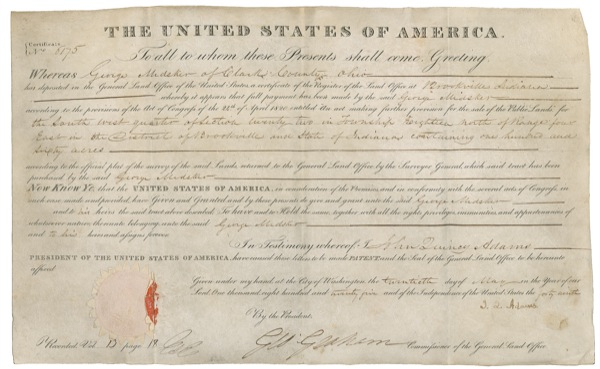 THE UNITED STATES OF AMERICA.
Certificate
No. 8175
To all to whom these Presents shall come, Greeting:
Whereas George Medsker of Clark County Ohio
has deposited in the General Land Office of the United States, a certificate of the Register of the Land Office at Brookville Indiana
whereby it appears that full payment has been made by the said George Medsker
according to the provisions of the Act of Congress of the 24th of April 1820, entitled An act making further provision for the sale of the Public Lands for
the South west quarter of Section twenty two in Township Eighteen north of Range four
East in the District of Brookville and State of Indiana containing one hundred and
sixty acres
according to the official plat of the survey of the said Lands, returned to the General Land Office by the Surveyor General, which said tract has been
purchased by the said George Medsker
Now Know Ye, that the UNITED STATES OF AMERICA, in consideration of the Premises, and in conformity with the several acts of Congress, in
such case made and provided, have Given and Granted, and by these presents do give and grant unto the said George Medsker
and to his heirs the said tract above described: To have and to Hold the same, together with all the rights, privileges, immunities, and appurtenances of
whatsoever nature thereunto belonging, unto the said George Medsker
and to his heirs and assigns forever.
In Testimony whereof, I John Quincy Adams
PRESIDENT OF THE UNITED STATES OF AMERICA, have caused these letters to be made PATENT and the Seal of the General Land Office to be hereunto
affixed
Given under my hand, at the City of Washington, the twentieth day of May in the Year of our
Lord One thousand eight hundred and twenty five and of the Independence of the United States the forty ninth
J. Q. Adams
By the President.
Geo: Graham Commissioner of the General Land Office.
Recorded, Vol. page 18